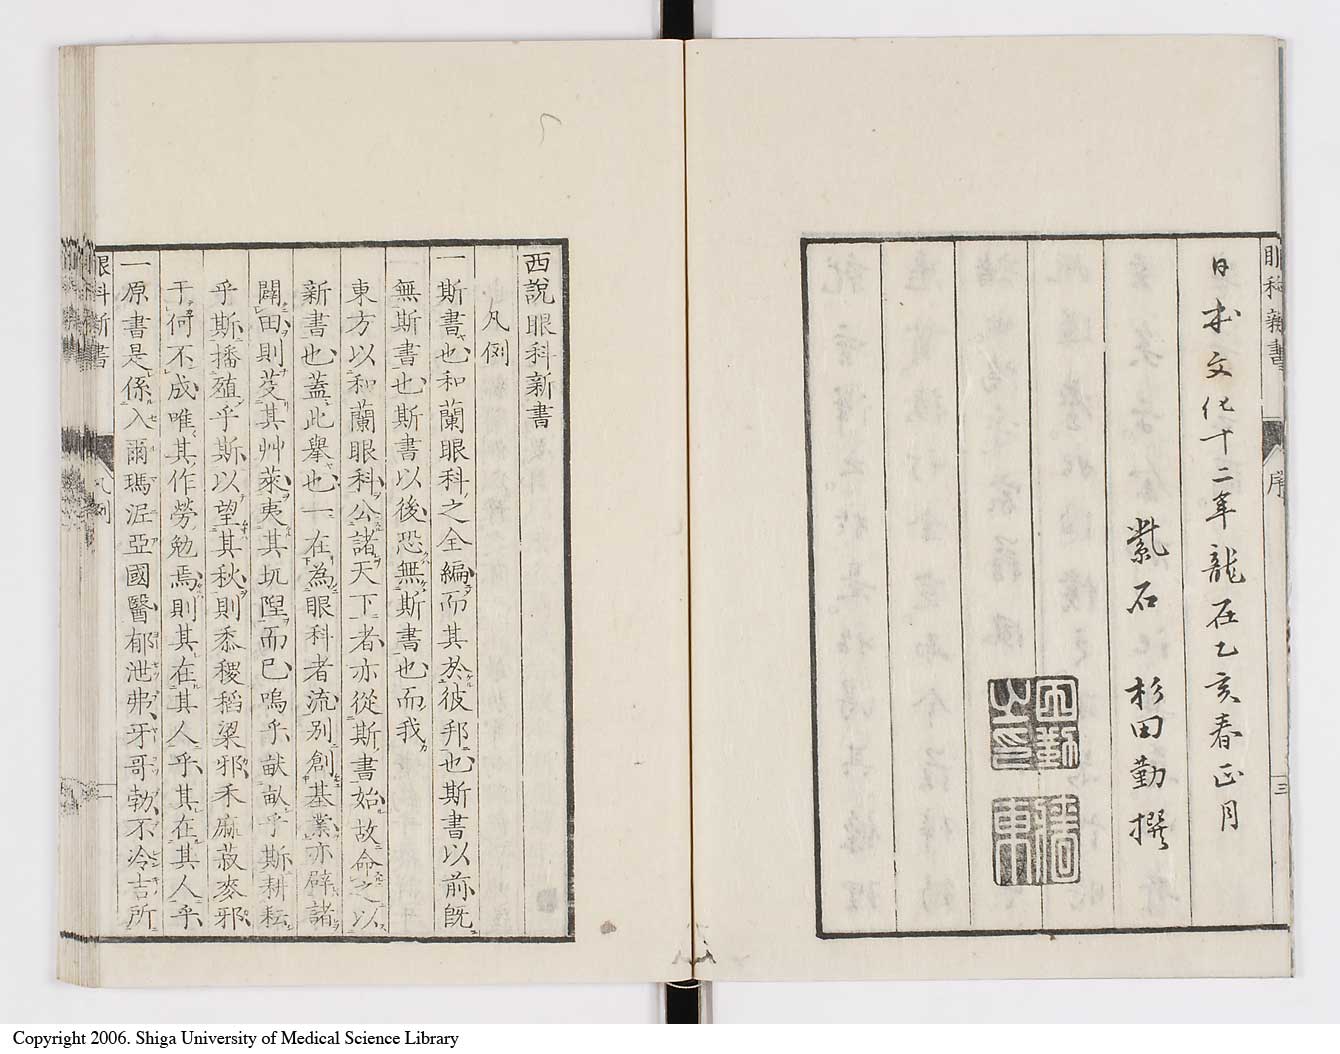 眼科新書
序
三
日本文化十二年龍在乙亥春正月
紫石 杉田勤撰
西說眼科新書
凡例
一斯書也和蘭眼科之全編而其於彼邦也斯書以前既
無斯書也斯書以後恐無斯書也而我
東方以和蘭眼科公諸天下者亦從斯書始故命之以
新書也蓋此舉也一在為眼科者流別創基業亦辟諸
闢田則芟其艸萊夷其坑隍而已嗚乎畎畝乎斯耕耘
乎斯播殖乎斯以望其秋則黍稷稻粱邪禾麻菽麥邪
于何不成唯其作勞勉焉則其在其人乎其在其人乎
一原書是係入爾瑪泥亞國醫郁泄弗牙哥勃不冷吉所
眼科新書
凡例
一
Copyright 2006. Shiga University of Medical Science Library